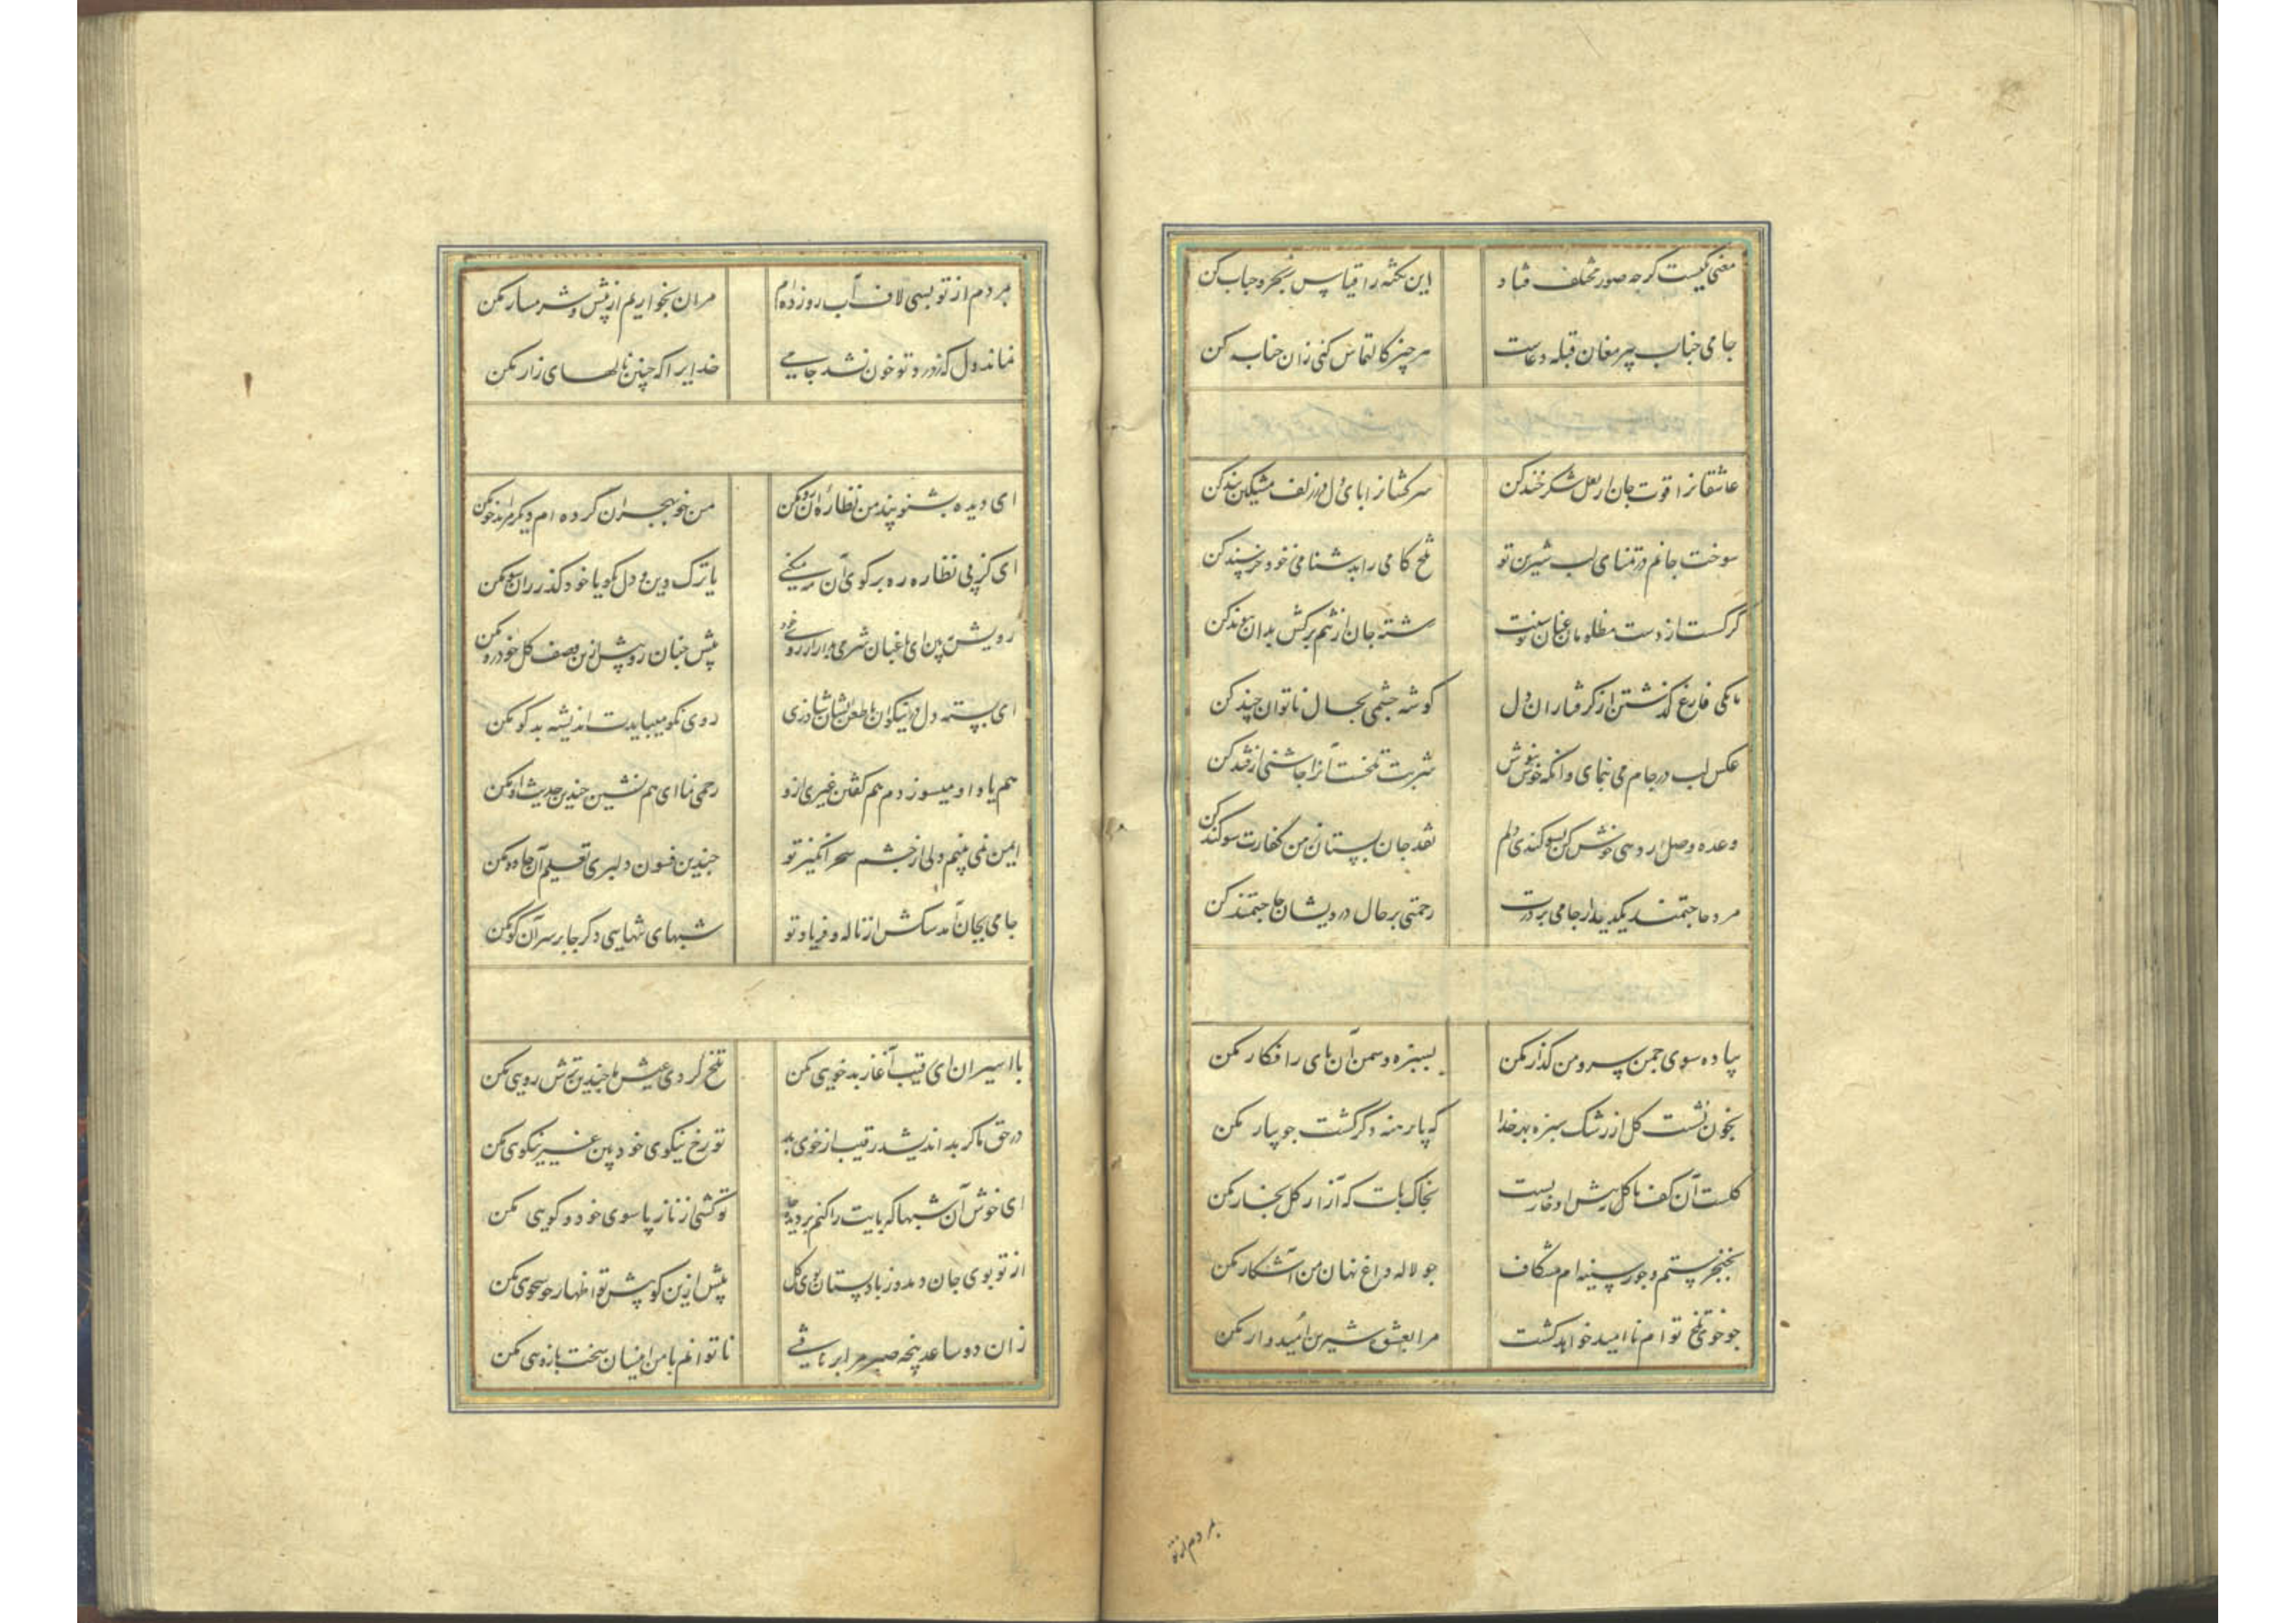 معنی یکیست گرچه صور مختلف فتاد این نکته را قیاس ز بحر و حباب کن
جامی جناب پیر مغان قبله دعاست هر چیز کالتماس کنی زان جناب کن
عاشقانرا قوت جان از لعل شکر خند کن سرکشانرا پای دل در زلف مشکین بند کن
سوخت جانم در تمنای لب شیرین تو تلخ کامی را بدشنامی ز خود خرسند کن
گر گسست از دست مظلومان عنان رشته جان از تنم برکش بدان پیوند کن
تا بکی فارغ گذشتن از گرفتاران دل گوشه چشمی بحال ناتوان چند کن
عکس لب در جام می بنمای وانگه خوش بنوش شربت تلخست آنرا چاشنی از قند کن
وعده وصل ار دهی خوش کن بسوگندی دلم نقد جان بستان ز من کفارت سوگند کن
مرد حاجتمند یک دیدار جامی بر درت رحمتی بر حال درویشان حاجتمند کن
پیاده سوی چمن سرو من گذار مکن بسبزه و سمن آن پای را فکار مکن
بخون نشست گل از رشک سبزه بهر خدا که پا برهنه دگر گشت جویبار مکن
گلست آن کف پا گل به پیش او خاریست بخاک پات که آزار گل بخار مکن
بخنجر ستم و جور سینه ام مشکاف چو لاله داغ نهان من آشکار مکن
چو خوی تلخ توام ناامید خواهد کشت مرا بعشوه شیرین امیدوار مکن
بمردم از تو
بمردم از تو بسی لاف آب رو زده ام مران بخواریم از پیش و شرمسار مکن
نماند دل که ز درد تو خون نشد جامی خدایرا که چنین نالهای زار مکن
ای دیده بشنو پند من نظاره آن رو مکن من خو بهجران کرده ام دیگر مرا بدخو مکن
ای کز پی نظاره ره بر کوی آن مه میکنی یا ترک دین و دل بگو یا خود گذر زان سو مکن
رویش ببین ای باغبان شرمی بدار از روی خود پیش چنان رو بیش ازین وصف گل خودرو مکن
ای بسته دل در نیکوان با طعن ایشان شاد زی روی نکو میبایدت اندیشه بدگو مکن
هم یاد او میسوزدم هم گفتن غیری ازو رحمی نما ای هم نشین چندین حدیث او مکن
ایمن نمی بینم دلی از چشم سحر انگیز تو چندین فسون دلبری تعلیم آن جادو مکن
جامی بجان آمد سگش از ناله و فریاد تو شبهای تنهایی دگر جا بر سر آن کو مکن
با اسیران ای رقیب آغاز بدخویی مکن تلخ کردی عیش ما چندین ترش رویی مکن
در حق ما گر بد اندیشد رقیب از خوی بد تو رخ نیکوی خود بین غیر نیکویی مکن
ای خوش آن شبها که پایت را کنم بر دیده جا تو کشی از ناز پا سوی خود و گویی مکن
از تو بوی جان دمد وز باد بستان بوی گل بیش ازین گو پیش تو اظهار خوشبویی مکن
زان دو ساعد پنجه صبر مرا برتافتی ناتوانم با من اینسان سخت بازویی مکن